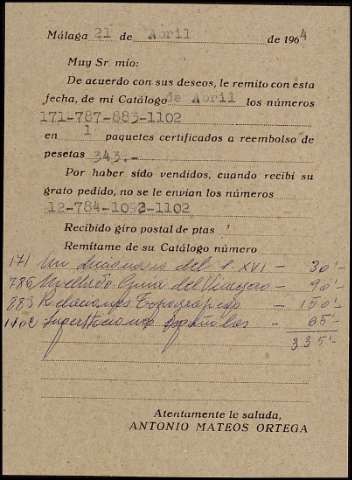 Málaga 21 de Abril de 1964
Muy Sr mío:
De acuerdo con sus deseos, le remito con esta
fecha, de mi Catálogo de Abril los números
171-787-883-1102
en 1 paquetes certificados a reembolso de
pesetas 343.-
Por haber sido vendidos, cuando recibí su
grato pedido, no se le envían los números
12-784-1092-1102
Recibido giro postal de ptas
Remítame de su Catálogo número
171 Un diccionario del s. XVI - 30'-
786 Guia del Viagero - 90'-
883 Relaciones Topográficas - 150'-
1102 Supersticiones Españolas - 65'-
335'-
Atentamente le saluda,
ANTONIO MATEOS ORTEGA